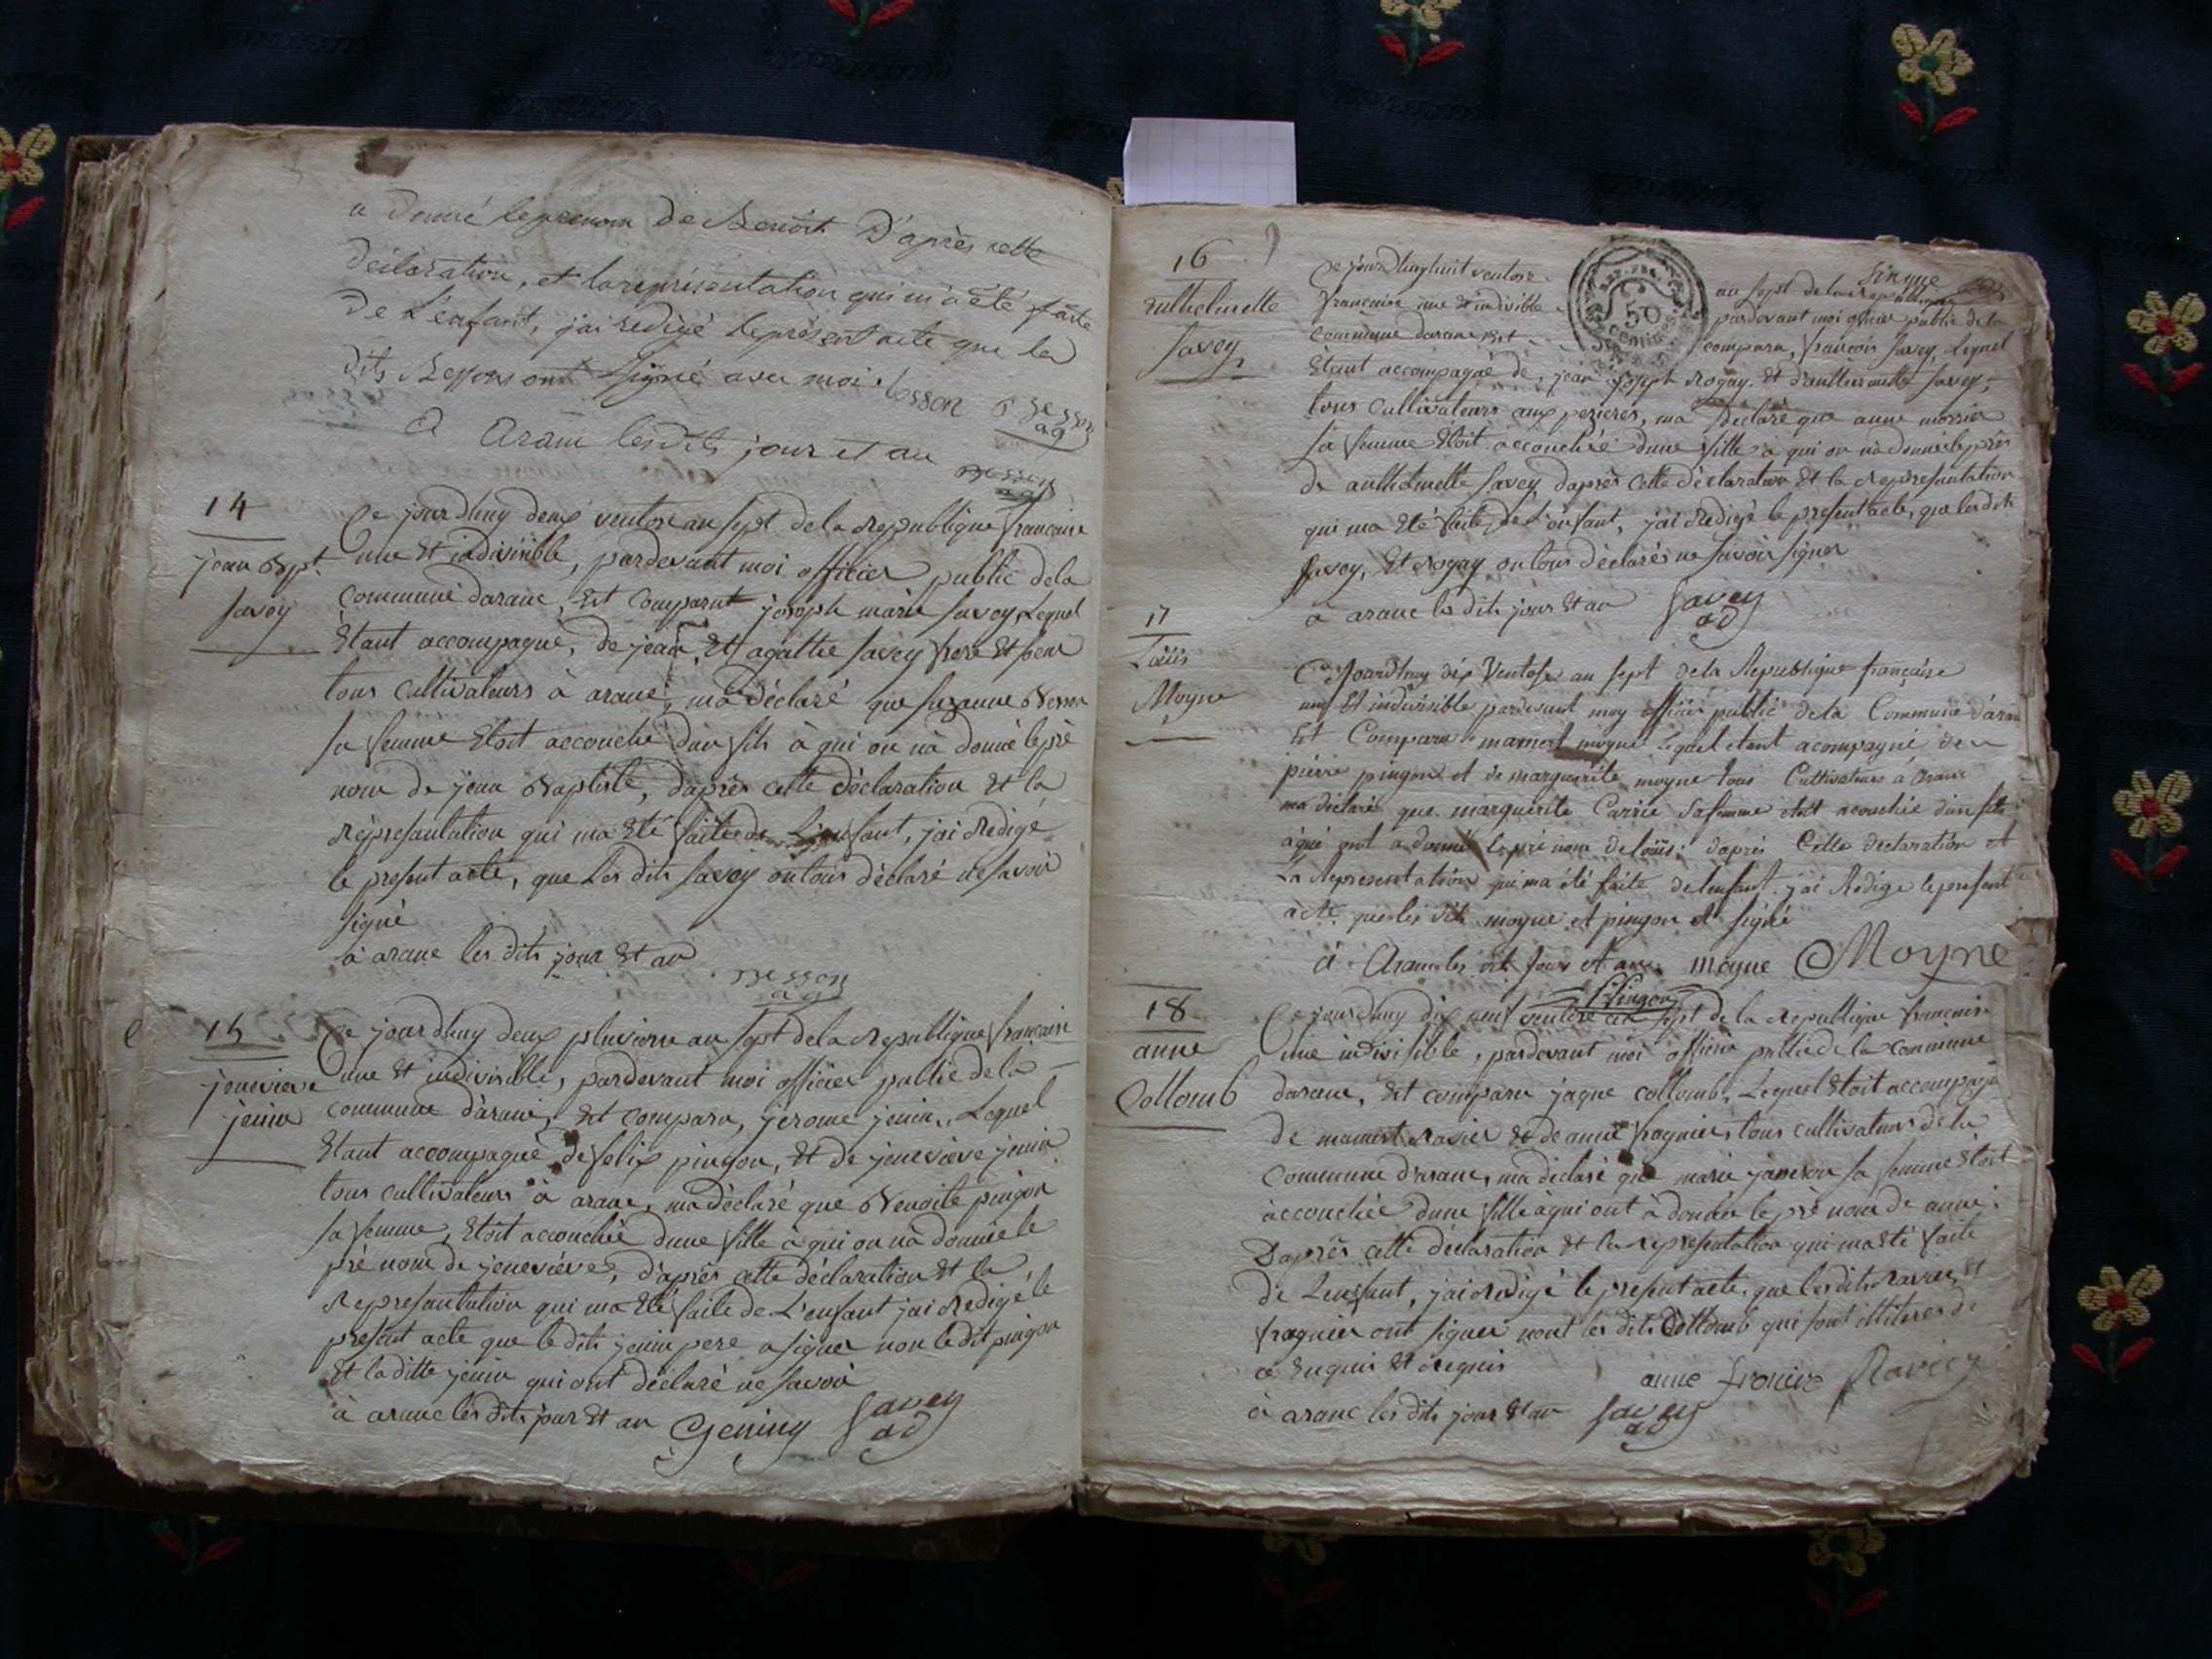 a donné le prenom de Benoît D'après cette
déclaration, et la représentation qui m'a été faite
de L'enfant, j'ai redigé le présent acte que les
dits Bessons ont signé avec moi. besson B Besson
ag
A Aranc lesdits jour et an
Besson
ag
14
jean Bpt.
Savey
Ce jourdhuy deux ventose an sept de la republique francaise
une Et indivisible, pardevant moi officier public dela
Commune daranc, Est comparut joseph marie Savey, Lequel
Etant accompagné, de jean, Et agathe Savey frere Et soeur
tous cultivateurs à aranc, ma déclaré que suzanne
sa femme Etoit accouché dun fils à qui on nà donné le pré
nom de jean Baptiste, daprès cette déclaration Et la
répresantation qui ma Eté faite de L'ensant, jai Redigé
le présent acte, que les dits Savey ont tous déclaré ne Savoir
signé
à aranc les dits jour Et an
Besson
ag
15
jenevieve
jenin
Ce jourdhuy deux pluviose an sept dela Republique francaise
une Et indivisible, pardevant moi officier public dela
commune d'aranc, Est compara, jerome jenin, Lequel
Etant accompagné de felix pingon, Et de jenevieve jenin
tous cultivateurs à aranc, ma déclaré que Benoite pingon
sa femme, Etoit accouchée dune fille à qui on nà donnée le
pré nom de jeneviève, d'après cette déclaration Et la
Represantation qui ma Eté faite de L'enfant jai Redigé le
présent acte que le dits jenin pere a signer non le dit pingon
Et la ditte jenin qui ont déclaré ne savoir
à aranc les dits jour Et an Geniny Savey
ad
16
anthelmette
Savey
Ce jourdhuy huit ventose an sept de la republique
française une Et indivisible pardevant moi officier public de la
commune daranc Est compara, françois Savey, lequel
REP. FRA.
50
CENTIMES
Etant accompagné de, jean joseph Rogay Et d'anthelmette Savey,
tous cultivateurs aux pezieres, ma déclaré que anne
sa femme Etoit accouchée dune fille à qui on nà donné le pré
de anthelmette Savey, daprès cette déclaration Et la Represantation
qui ma Eté faite de L'enfant, jai Redigé le présent acte, que les dits
Savey, Et Rogay ont tous déclarés ne savoir signer
à aranc les dits jour Et an Savey
ad
17
Louis
Moyne
Cejourdhuy dix Ventose an sept dela Republique française
une Et indivisible pardevant moy officier public dela Commune d'aranc
Est Comparu mamert moyne Lequel etant acompagné de
pierre pingon et de marguerite moyne tous Cultivateurs à Aranc
ma déclaré que marguerite Carrie sa femme etoit acouchée d'un fils
à qui ont a donné le pré nom de Louis; daprès Cette declaration et
La Representation qui ma été faite delenfant jai Redigé le présent
acte que les dits moyne et pingon et signé
à Aranc les dit jour et an moyne Moyne
Pingon
18
anne
Collomb
Ce jourdhuy dix neuf ventose an sept de la Republique francaise
une indivisible, pardevant moi officier public de la commune
daranc, Est comparu jaque collomb, Lequel Etoit accompagné
de mamert Ravier Et de anne frognier, tous cultivateurs de la
Commune d'aranc, ma déclaré que marie sa femme Etoit
accouchée dune fille à qui ont à donnée le pré nom de anne;
D'après cette déclaration Et la representation qui ma Eté faite
de Lenfant, jai Redigé le présent acte, que les dits Ravier, Et
frognier ont signer nont les dits Collomb qui sont illitérés de
ce Enquis Et Requis anne fronier Ravier
à aranc les dits jour Et an Savey
ad